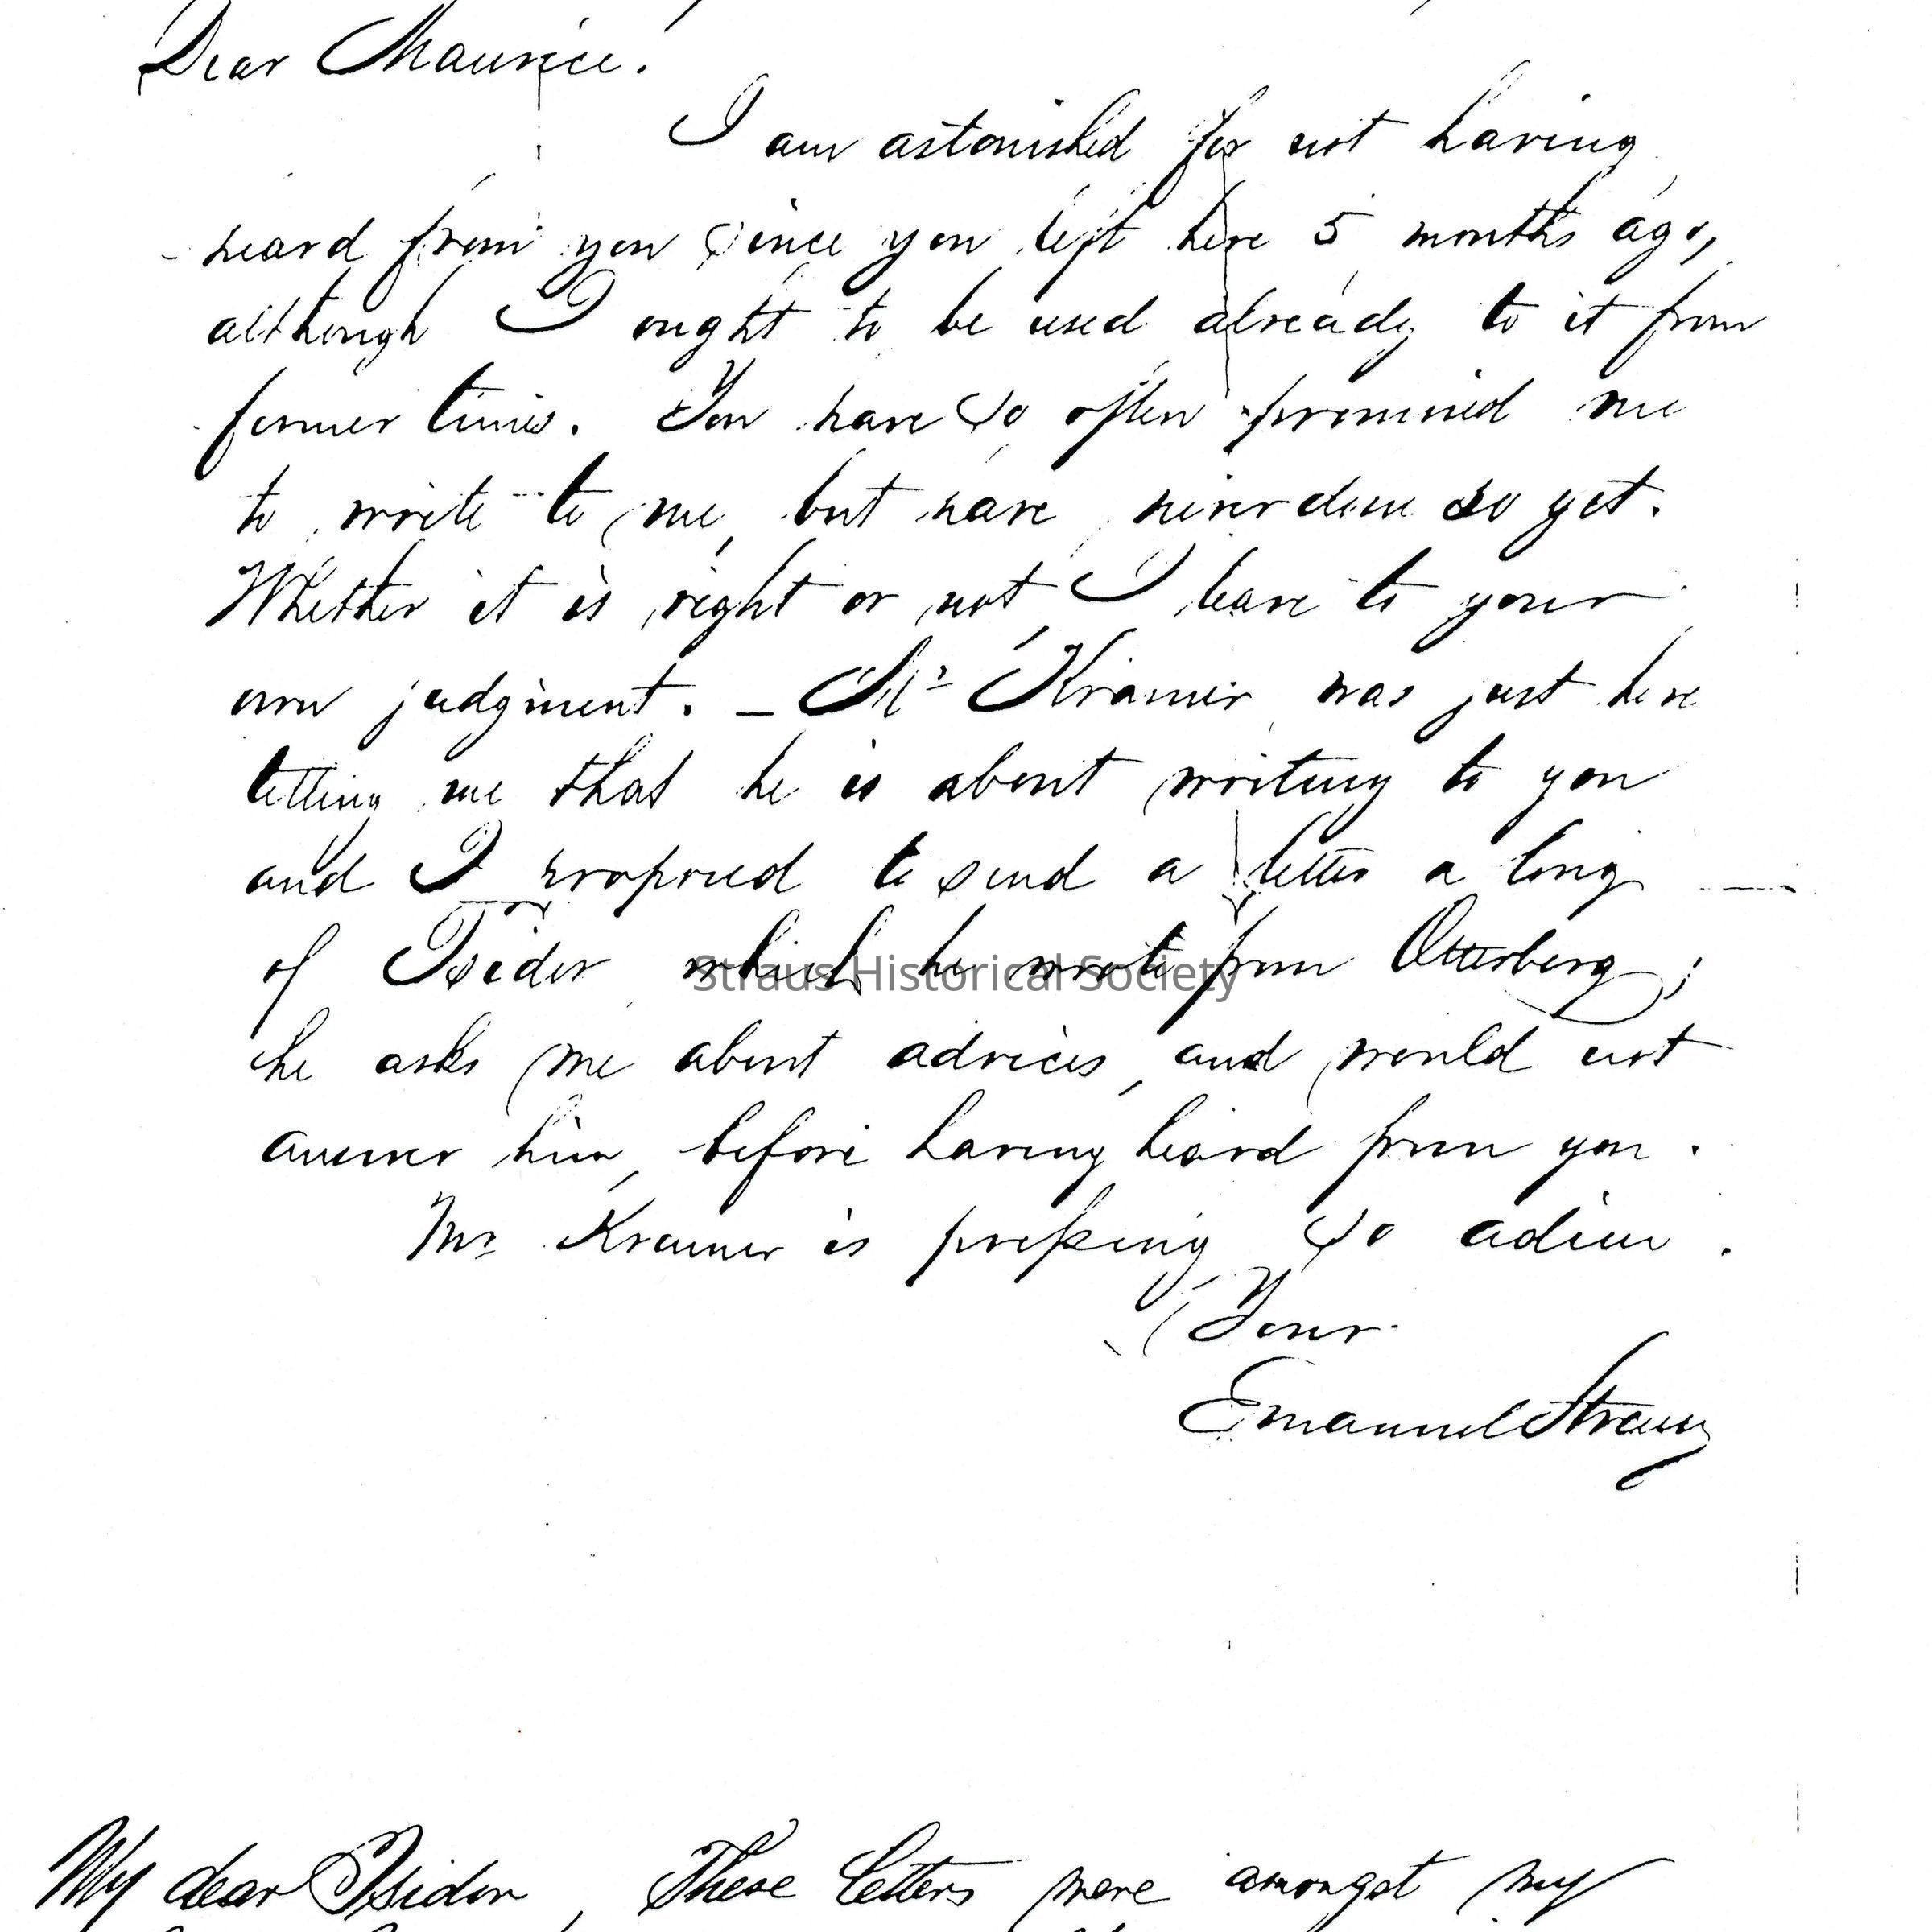 Dear Maurice!
I am astonished for not having
heard from you since you left here 5 months ago,
although I ought to be used already to it from
former times. You have so often promised me
to write to me, but have never done so yet.
Whether it is right or not I leave to your
own judgment. – Mr Kramer was just here
telling me that he is about writing to you
and I proposed to send a letter a long
of Isidor which he wrote from Otterberg;
he asks me about advices, and would not
answer him, before having heard from you.
Mr Kramer is pressing so adieu.
Your
Emanuel Straus
Straus Historical Society
My dear Isidor, These letters were amongst my